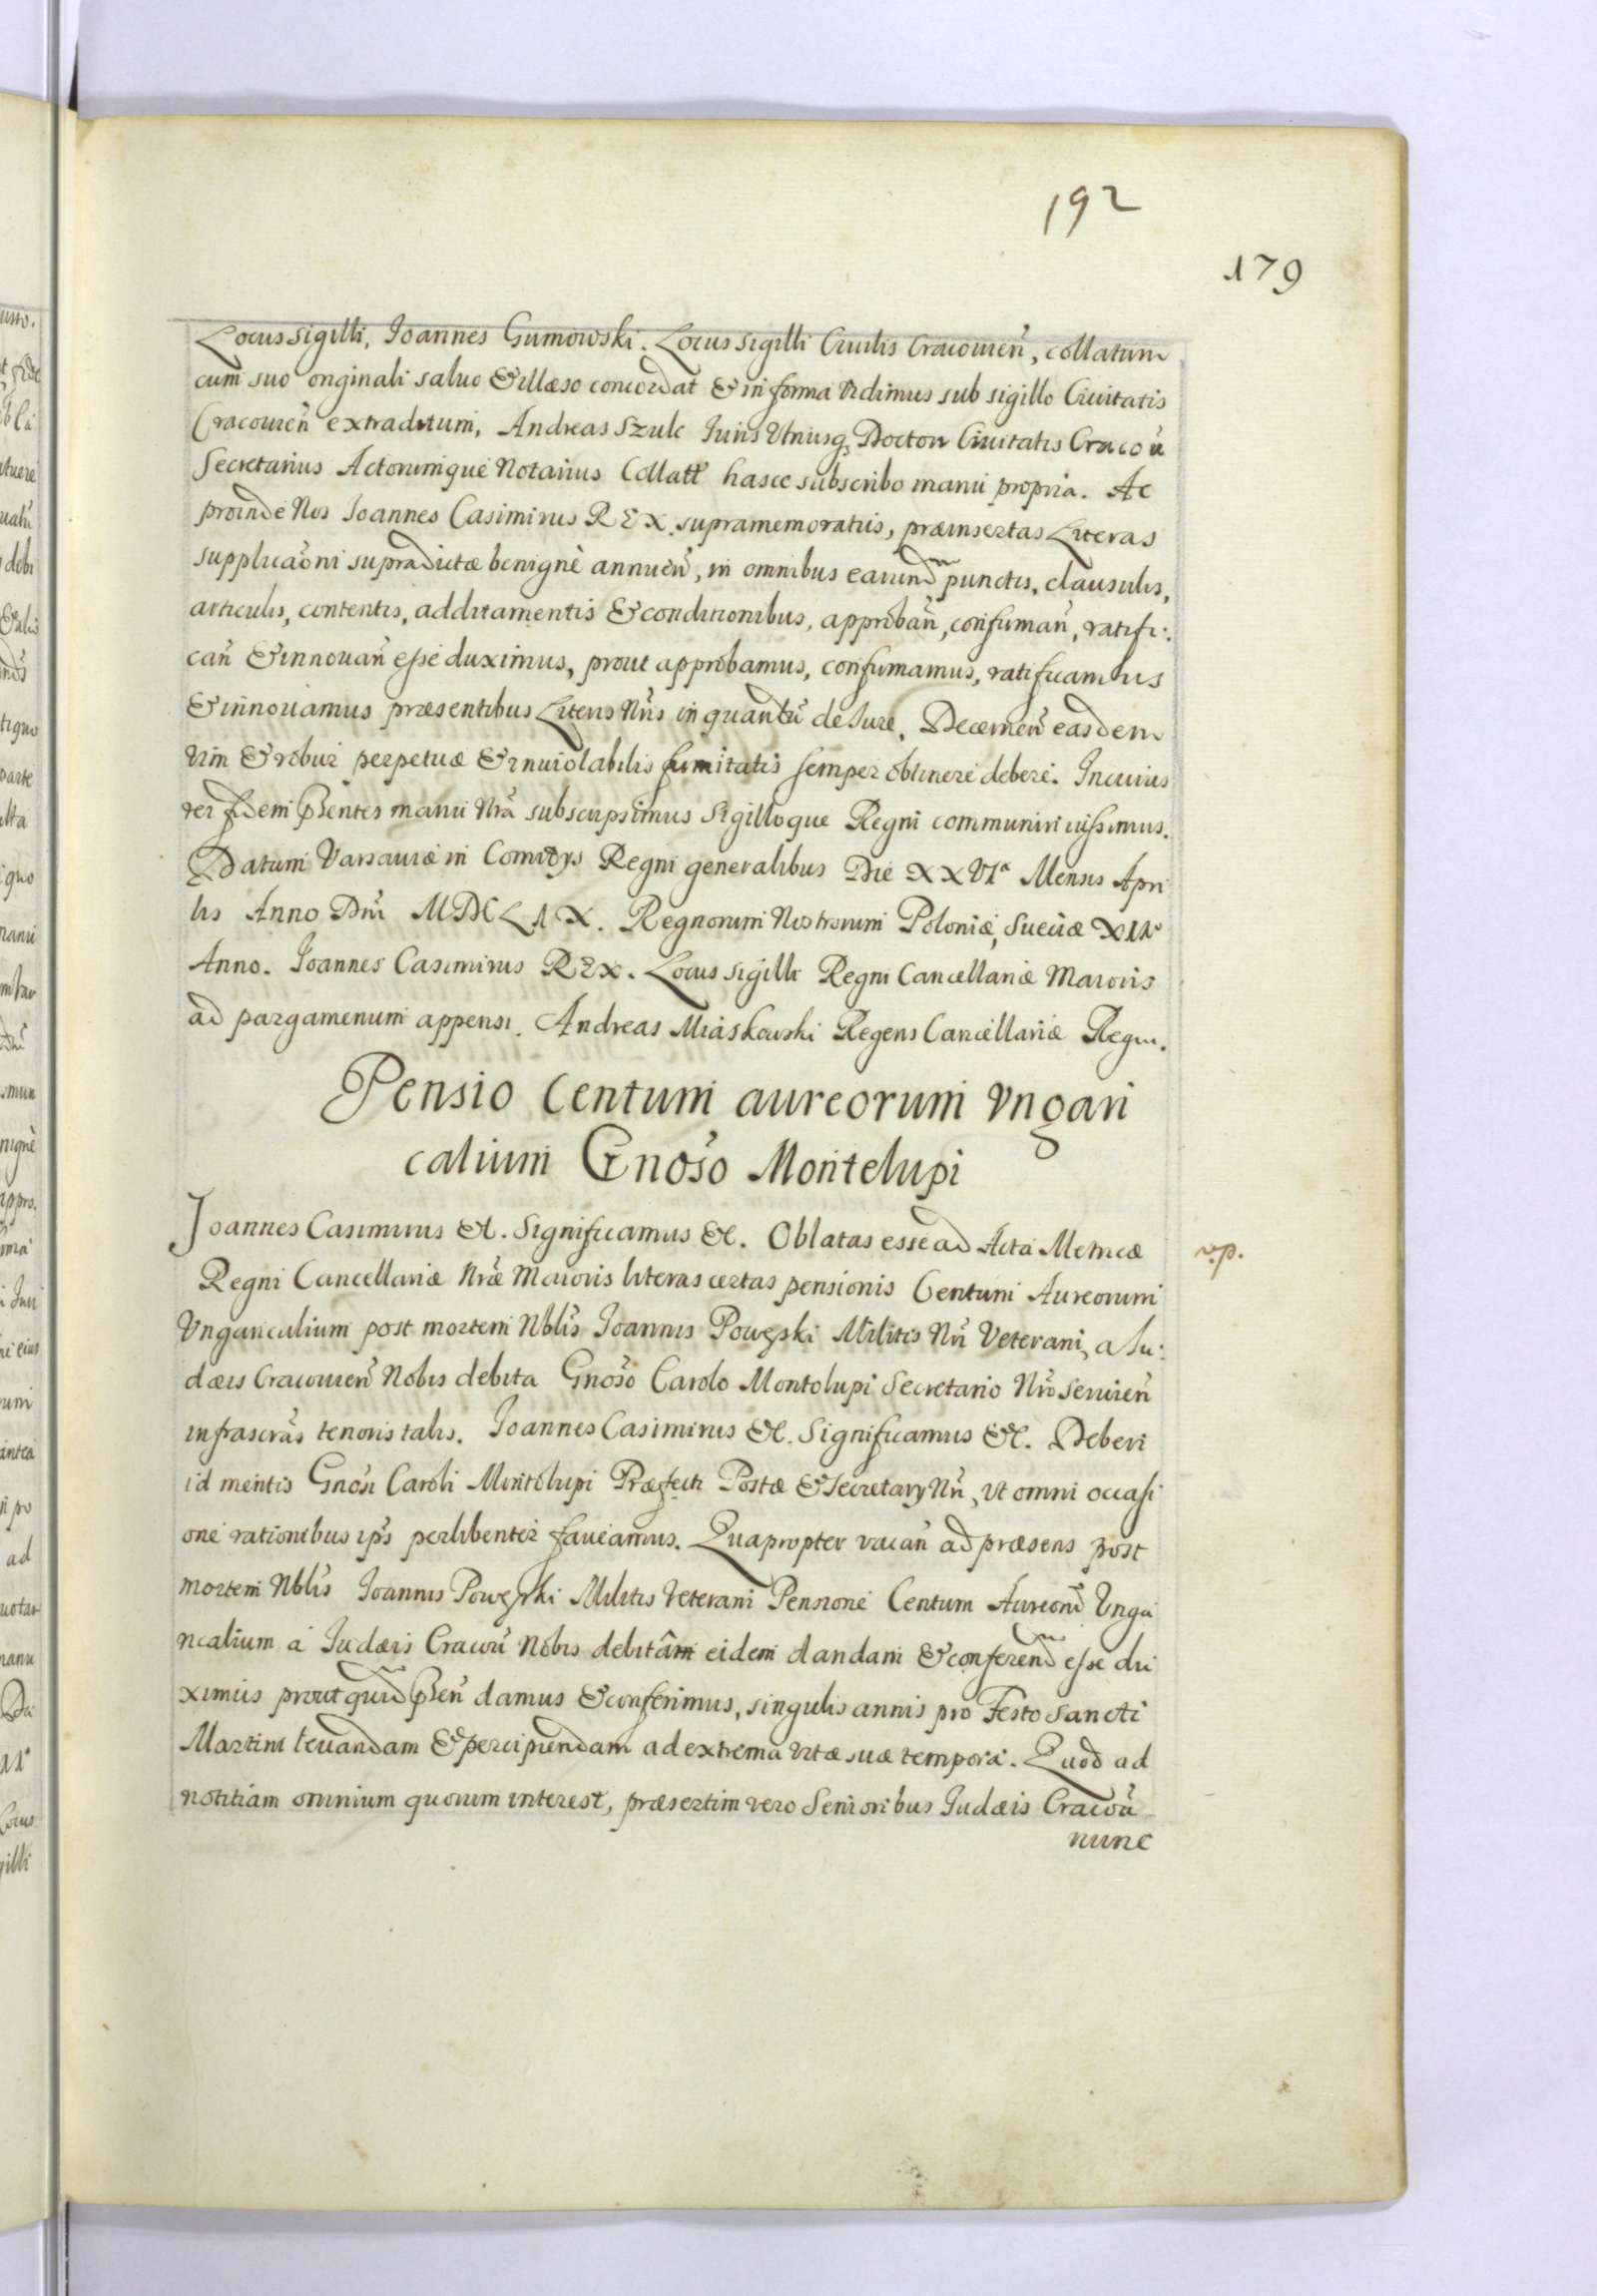 192
179
Locus Sigilli, Joannes Gumowski. Locus sigilli Civilis Cracovieñ, collatum
cum suo originali salvo & illæso concordat & in forma vidimus sub sigillo Civitatis
Cracovieñ extraditum, Andreas Szulc Juris Utriusq; Doctor Civitatis Cracoũ
Secretarius Actorumque Notarius Collatt hasce subscribo manu propria. Ac
proinde Nos Joannes Casimirus REX supramemoratus, præinsertas Literas
supplicaõni supradictæ benignè annueñ, in omnibus earund punctis, clausulis,
articulis, contentis, additamentis & conditionibus, approbañ, confirmañ, ratifi:
cañ & innovañ esse duximus, prout approbamus, confirmamus, ratificamus
& innovamus præsentibus Literis Nr̃is in quantũ de Jure. Decerneñ easdem
vim & robur perpetuæ & inviolabilis firmitatis semper obtinere debere. In cuius
rei fidem pñtes manu Nr̃a subscripsimus Sigilloque Regni communiri iussimus.
Datum Varsaviæ in Comitys Regni generalibus Die XXVIa Mensis Apri
lis Anno Dni MDCLIX. Regnorum Nostrorum Poloniæ, Sueciæ XIo
Anno. Joannes Casimirus REX. Locus sigilli Regni Cancellariæ Maioris
ad pargamenum appensi. Andreas Miaskowski Regens Cancellariæ Regni.
Pensio Centum aureorum Ungari
calium Gnoso Montelupi
Joannes Casimirus &. Significamus &. Oblatas esse ad Acta Metricæ
v.p.
Regni Cancellariæ Nræ Maioris literas certas pensionis Centum Aureorum
Ungaricalium post mortem Nblis Joannis Powęski Militis Nri Veterani, a Ju:
dæis Cracovieñ Nobis debita Gnoso Carolo Montolupi Secretario Nro Servieñ
infrascrãs tenoris talis. Joannes Casimirus &. Significamus &. Deberi
id meritis Gnosi Caroli Montolupi Præfecti Postæ & Secretary Nri, ut omni occasi
one rationibus ipsi perlibenter faveamus. Quapropter vacañ ad præsens post
mortem Nblis Joannis Powęski Militis Veterani Pensione Centum Aureorũ Unga
ricalium a Judæis Cracoũ Nobis debitâm eidem dandam & conferend esse du
ximus prout quid pñ damus & conferimus, singulis annis pro Festo Sancti
Martini levandam & percipiendam ad extrema vitæ suæ tempora. Quod ad
notitiam omnium quorum interest, præsertim vero Senioribus Judæis Cracoũ
nunc